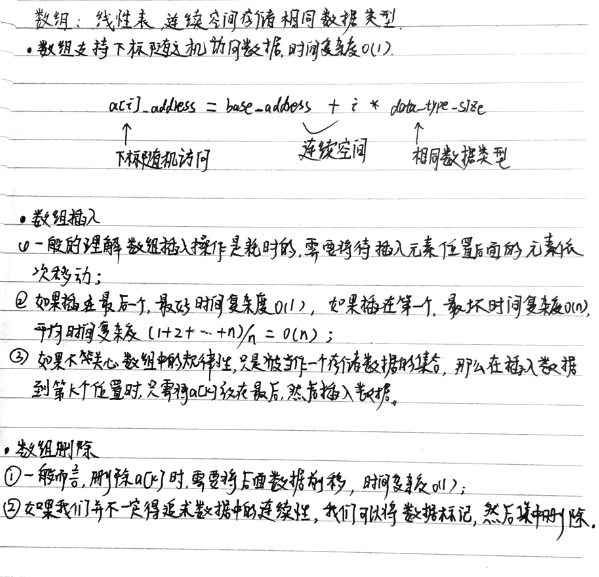 数组：线性表，连续空间存储相同数据类型.
• 数组支持下标随机访问数据，时间复杂度O(1).
a[i]_address = base_address + i * data_type_size
↑ ↑
下标随机访问 连续空间 相同数据类型
• 数组插入
① 一般的理解数组插入操作是耗时的，需要将待插入元素位置后面的元素依
次移动；
② 如果插在最后一个，最好时间复杂度O(1)，如果插在第一个，最坏时间复杂度O(n)，
平均时间复杂度 (1+2+…+n)/n = O(n)；
③ 如果不关心数组中的规律性，只是被当作一个存储数据的集合，那么在插入数据
到第k个位置时，只需将a[k]放在最后，然后插入数据。
• 数组删除
① 一般而言，删除a[k]时，需要将后面数据前移，时间复杂度O(1)；
② 如果我们并不一定得追求数据中的连续性，我们可以将数据标记，然后集中删除.